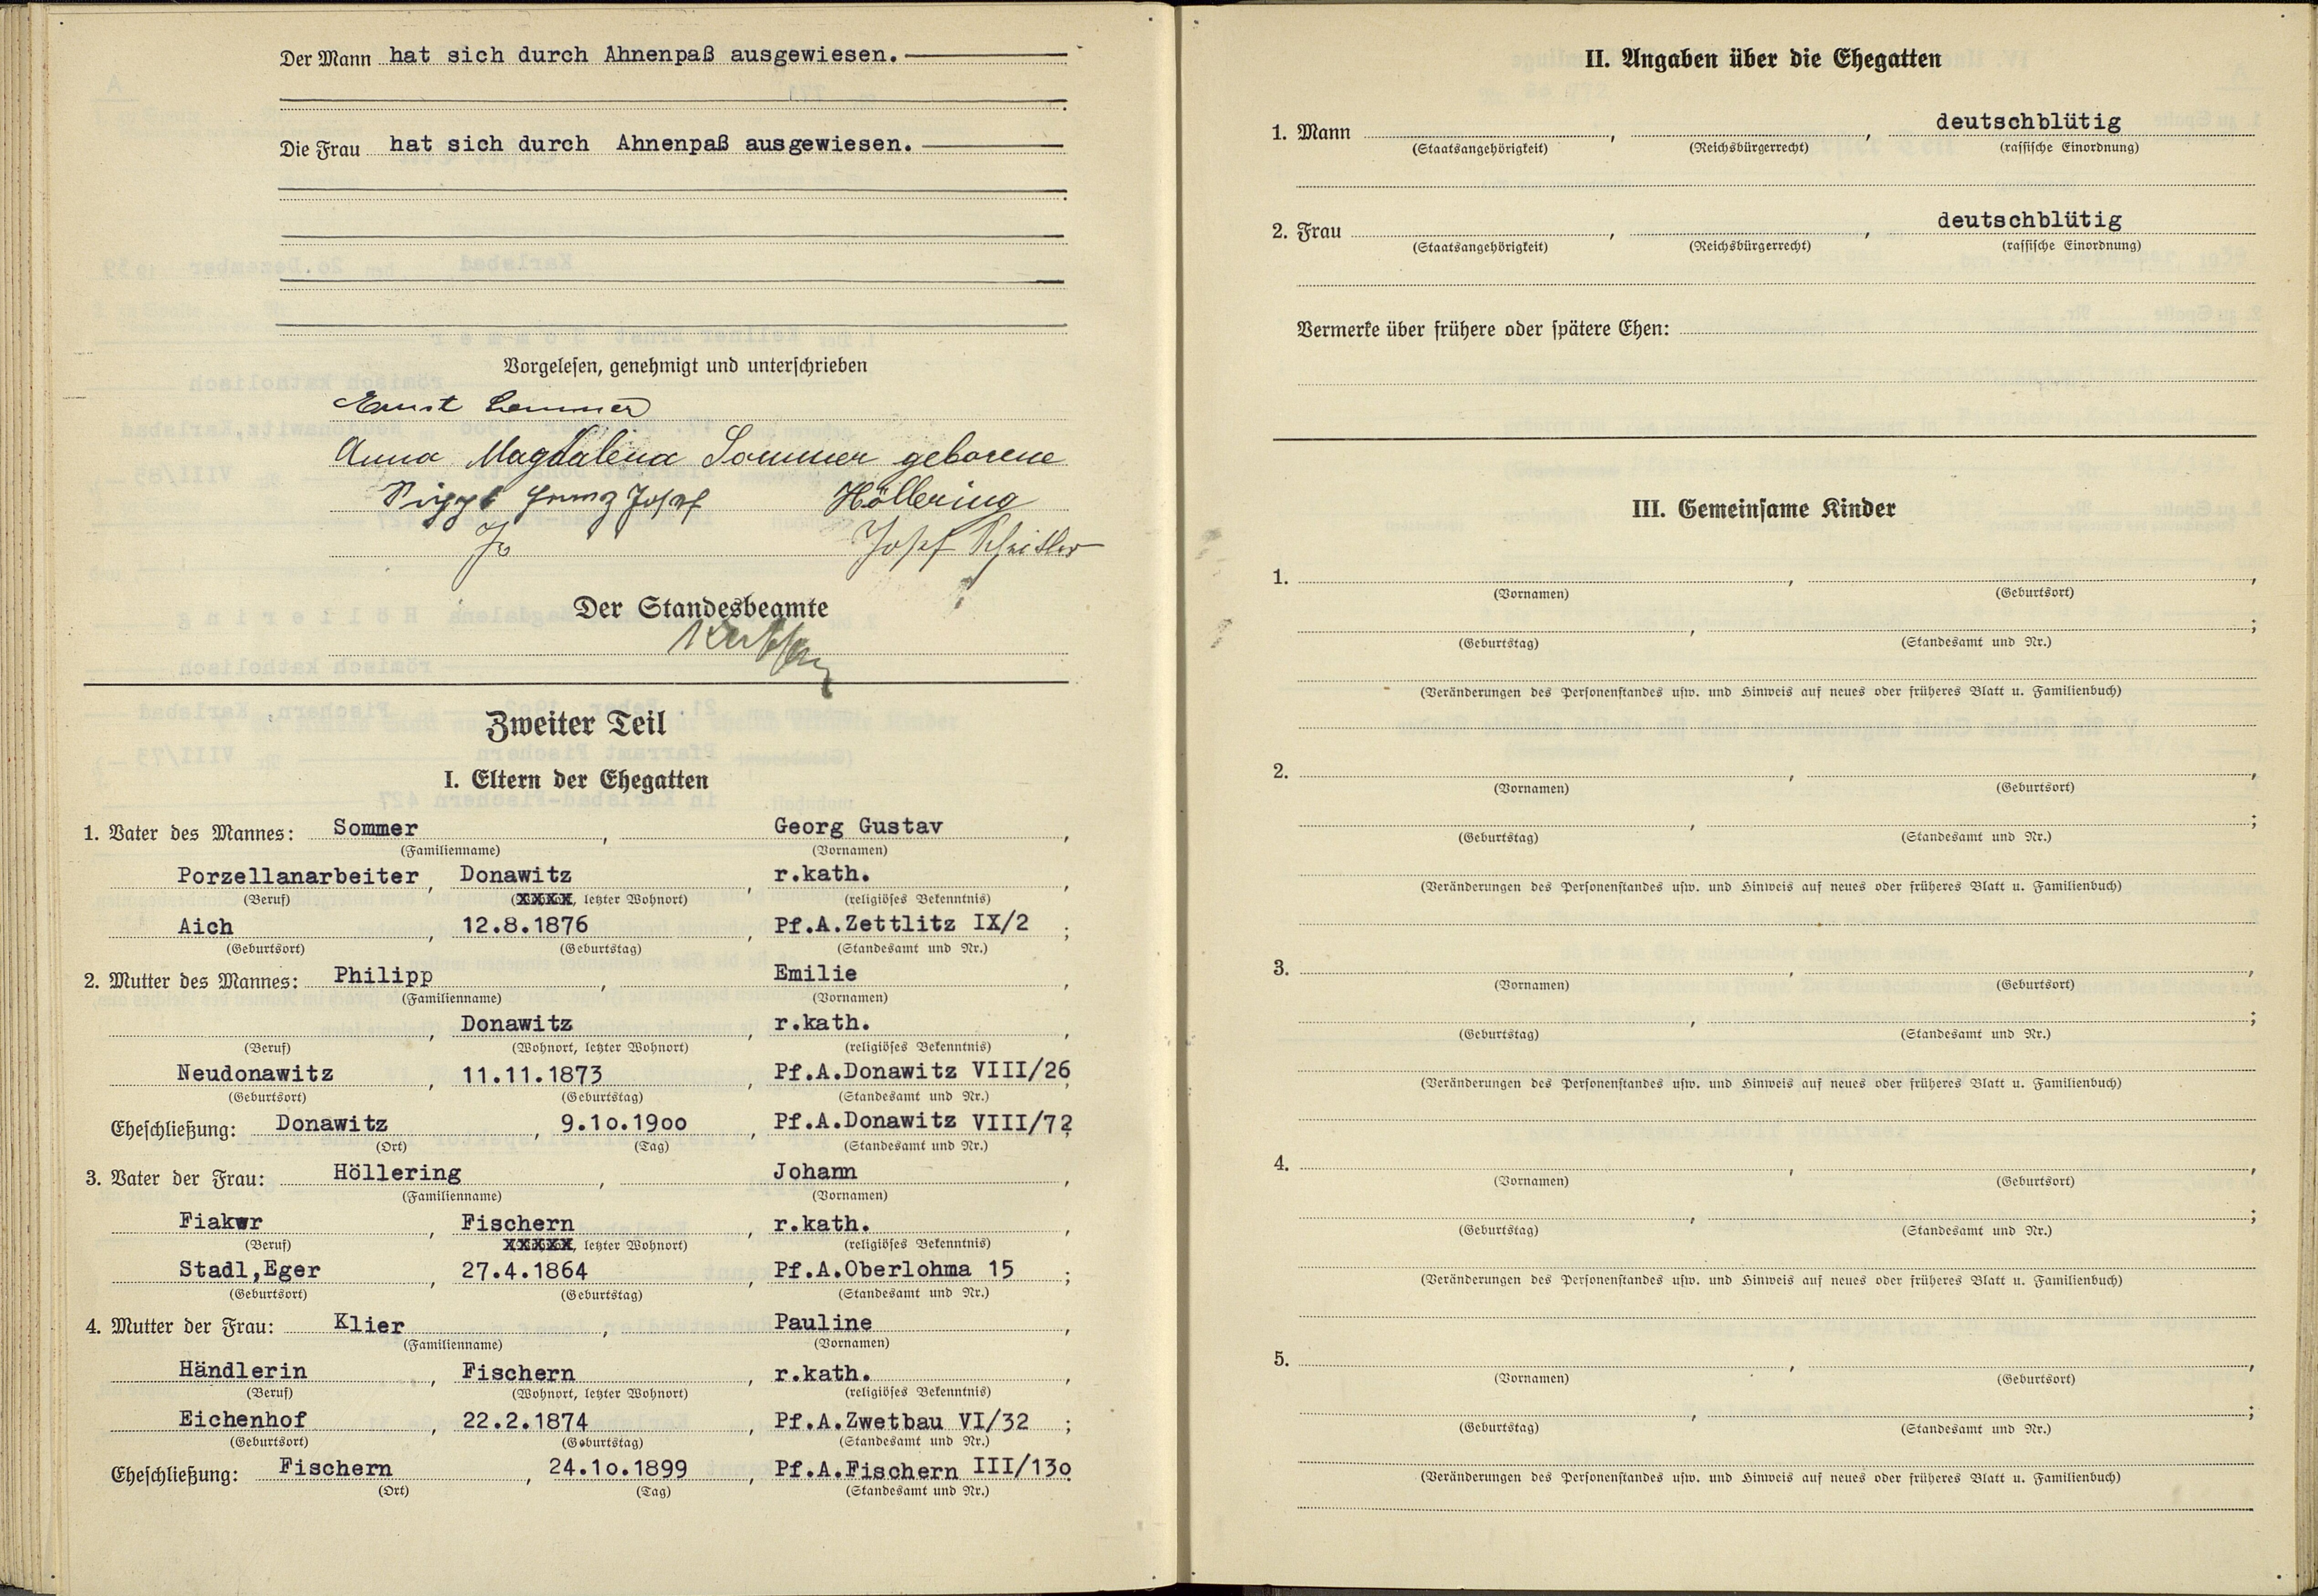 Der Mann hat sich durch Ahnenpaß ausgewiesen.
Die Frau hat sich durch Ahnenpaß ausgewiesen.
Vorgelesen, genehmigt und unterschrieben
Ernst Sommer
Anna Magdalena Sommer geborene
Franz Josef Höllering
Josef
Der Standesbeamte
Zweiter Teil
I. Eltern der Ehegatten
1. Vater des Mannes: Sommer, Georg Gustav,
(Familienname) (Vornamen)
Porzellanarbeiter, Donawitz, r.kath.,
(Beruf) (xxxx, letzter Wohnort) (religiöses Bekenntnis)
Aich, 12.8.1876, Pf.A.Zettlitz IX/2;
(Geburtsort) (Geburtstag) (Standesamt und Nr.)
2. Mutter des Mannes: Philipp, Emilie,
(Familienname) (Vornamen)
, Donawitz, r.kath.,
(Beruf) (Wohnort, letzter Wohnort) (religiöses Bekenntnis)
Neudonawitz, 11.11.1873, Pf.A.Donawitz VIII/26,
(Geburtsort) (Geburtstag) (Standesamt und Nr.)
Eheschließung: Donawitz, 9.1o.19oo, Pf.A.Donawitz VIII/72;
(Ort) (Tag) (Standesamt und Nr.)
3. Vater der Frau: Höllering, Johann,
(Familienname) (Vornamen)
Fiakwr, Fischern, r.kath.,
(Beruf) (xxxxx, letzter Wohnort) (religiöses Bekenntnis)
Stadl,Eger, 27.4.1864, Pf.A.Oberlohma 15;
(Geburtsort) (Geburtstag) (Standesamt und Nr.)
4. Mutter der Frau: Klier, Pauline,
(Familienname) (Vornamen)
Händlerin, Fischern, r.kath.,
(Beruf) (Wohnort, letzter Wohnort) (religiöses Bekenntnis)
Eichenhof, 22.2.1874, Pf.A.Zwetbau VI/32;
(Geburtsort) (Geburtstag) (Standesamt und Nr.)
Eheschließung: Fischern, 24.1o.1899, Pf.A.Fischern III/13o.
(Ort) (Tag) (Standesamt und Nr.)
II. Angaben über die Ehegatten
1. Mann , , deutschblütig
(Staatsangehörigkeit) (Reichsbürgerrecht) (rassische Einordnung)
2. Frau , , deutschblütig
(Staatsangehörigkeit) (Reichsbürgerrecht) (rassische Einordnung)
Vermerke über frühere oder spätere Ehen:
III. Gemeinsame Kinder
1. , ,
(Vornamen) (Geburtsort)
, ;
(Geburtstag) (Standesamt und Nr.)
(Veränderungen des Personenstandes usw. und Hinweis auf neues oder früheres Blatt u. Familienbuch)
2. , ,
(Vornamen) (Geburtsort)
, ;
(Geburtstag) (Standesamt und Nr.)
(Veränderungen des Personenstandes usw. und Hinweis auf neues oder früheres Blatt u. Familienbuch)
3. , ,
(Vornamen) (Geburtsort)
, ;
(Geburtstag) (Standesamt und Nr.)
(Veränderungen des Personenstandes usw. und Hinweis auf neues oder früheres Blatt u. Familienbuch)
4. , ,
(Vornamen) (Geburtsort)
, ;
(Geburtstag) (Standesamt und Nr.)
(Veränderungen des Personenstandes usw. und Hinweis auf neues oder früheres Blatt u. Familienbuch)
5. , ,
(Vornamen) (Geburtsort)
, ;
(Geburtstag) (Standesamt und Nr.)
(Veränderungen des Personenstandes usw. und Hinweis auf neues oder früheres Blatt u. Familienbuch)